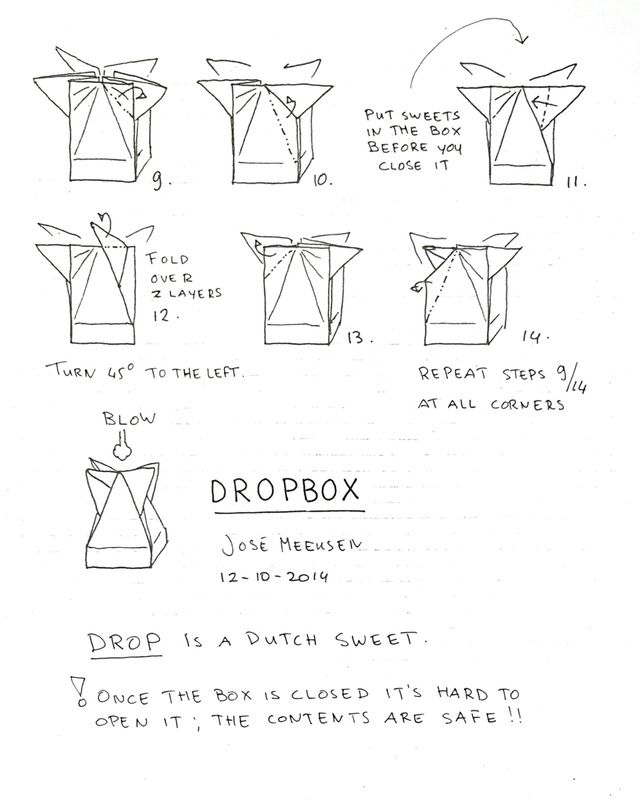 9.
10.
PUT SWEETS
IN THE BOX
BEFORE YOU
CLOSE IT
11.
FOLD
OVER
2 LAYERS
12.
13.
14.
TURN 45° TO THE LEFT.
REPEAT STEPS 9/14
AT ALL CORNERS
BLOW
DROPBOX
JOSÉ MEEUSEN
12-10-2014
DROP IS A DUTCH SWEET.
! ONCE THE BOX IS CLOSED IT'S HARD TO
OPEN IT; THE CONTENTS ARE SAFE!!